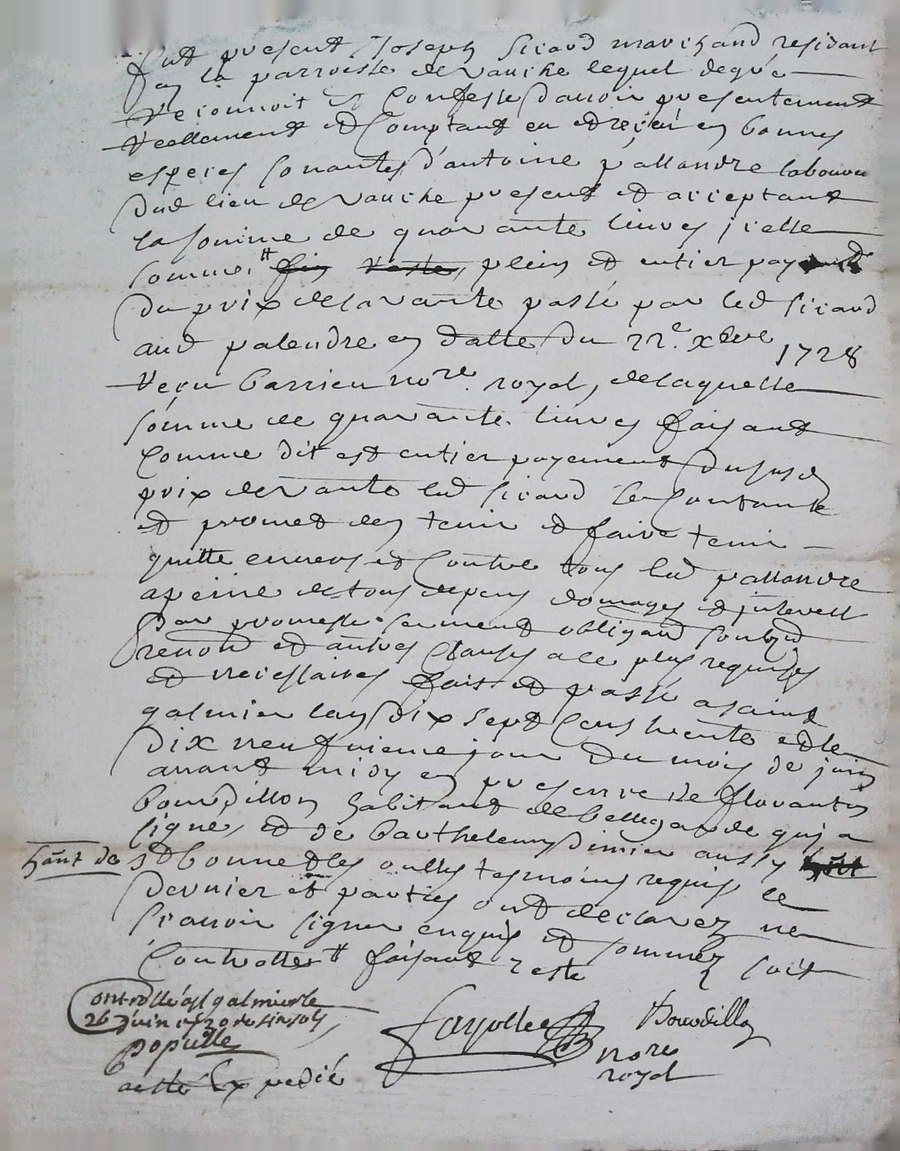 fut present Joseph Sicard marchand residant
en la parroisse de vauche lequel de gré
reconnoit et confesse d'avoir presentement
reellement et comptant eu et reçeu en bonnes
especes sonantes d'antoine pallandre laboureur
dud lieu de vauche present et acceptant
la somme de quarante livres jcelle
somme plein et entier
du prix de la vante passé par led Sicard
aud palendre en datte du 22e xbre 1728
reçu barrieu nore royal, de laquelle
somme de quarante livres faisant
comme dit est entier payement du susd
prix de vante led Sicard le contante
et promet den tenir et faire tenir
quitte envers et contre tous led pallandre
a peine de tous depens domages et jnterest
Par promesse serment obligaon soubzon
renon et autres clauses a ce plus requises
et neiessaires fait et passé a saint
galmier lan dix sept cens trente et le
dix neufuieme jour du mois de juin
avant midy en presence de florantin
bourdillon habitant de bellegarde qui a
signe, et de barthelemy Dimier aussy
hant de st bonnet les oulles tesmoins requis ce
dernier et parties ont declarez ne
scavoir signer enquis et sommez soit
Controllé faisant reste
Controllé a st galmier le
26 juin 1730 sols
populle
Expedié
fayolle
nore
royal
Bourdillon